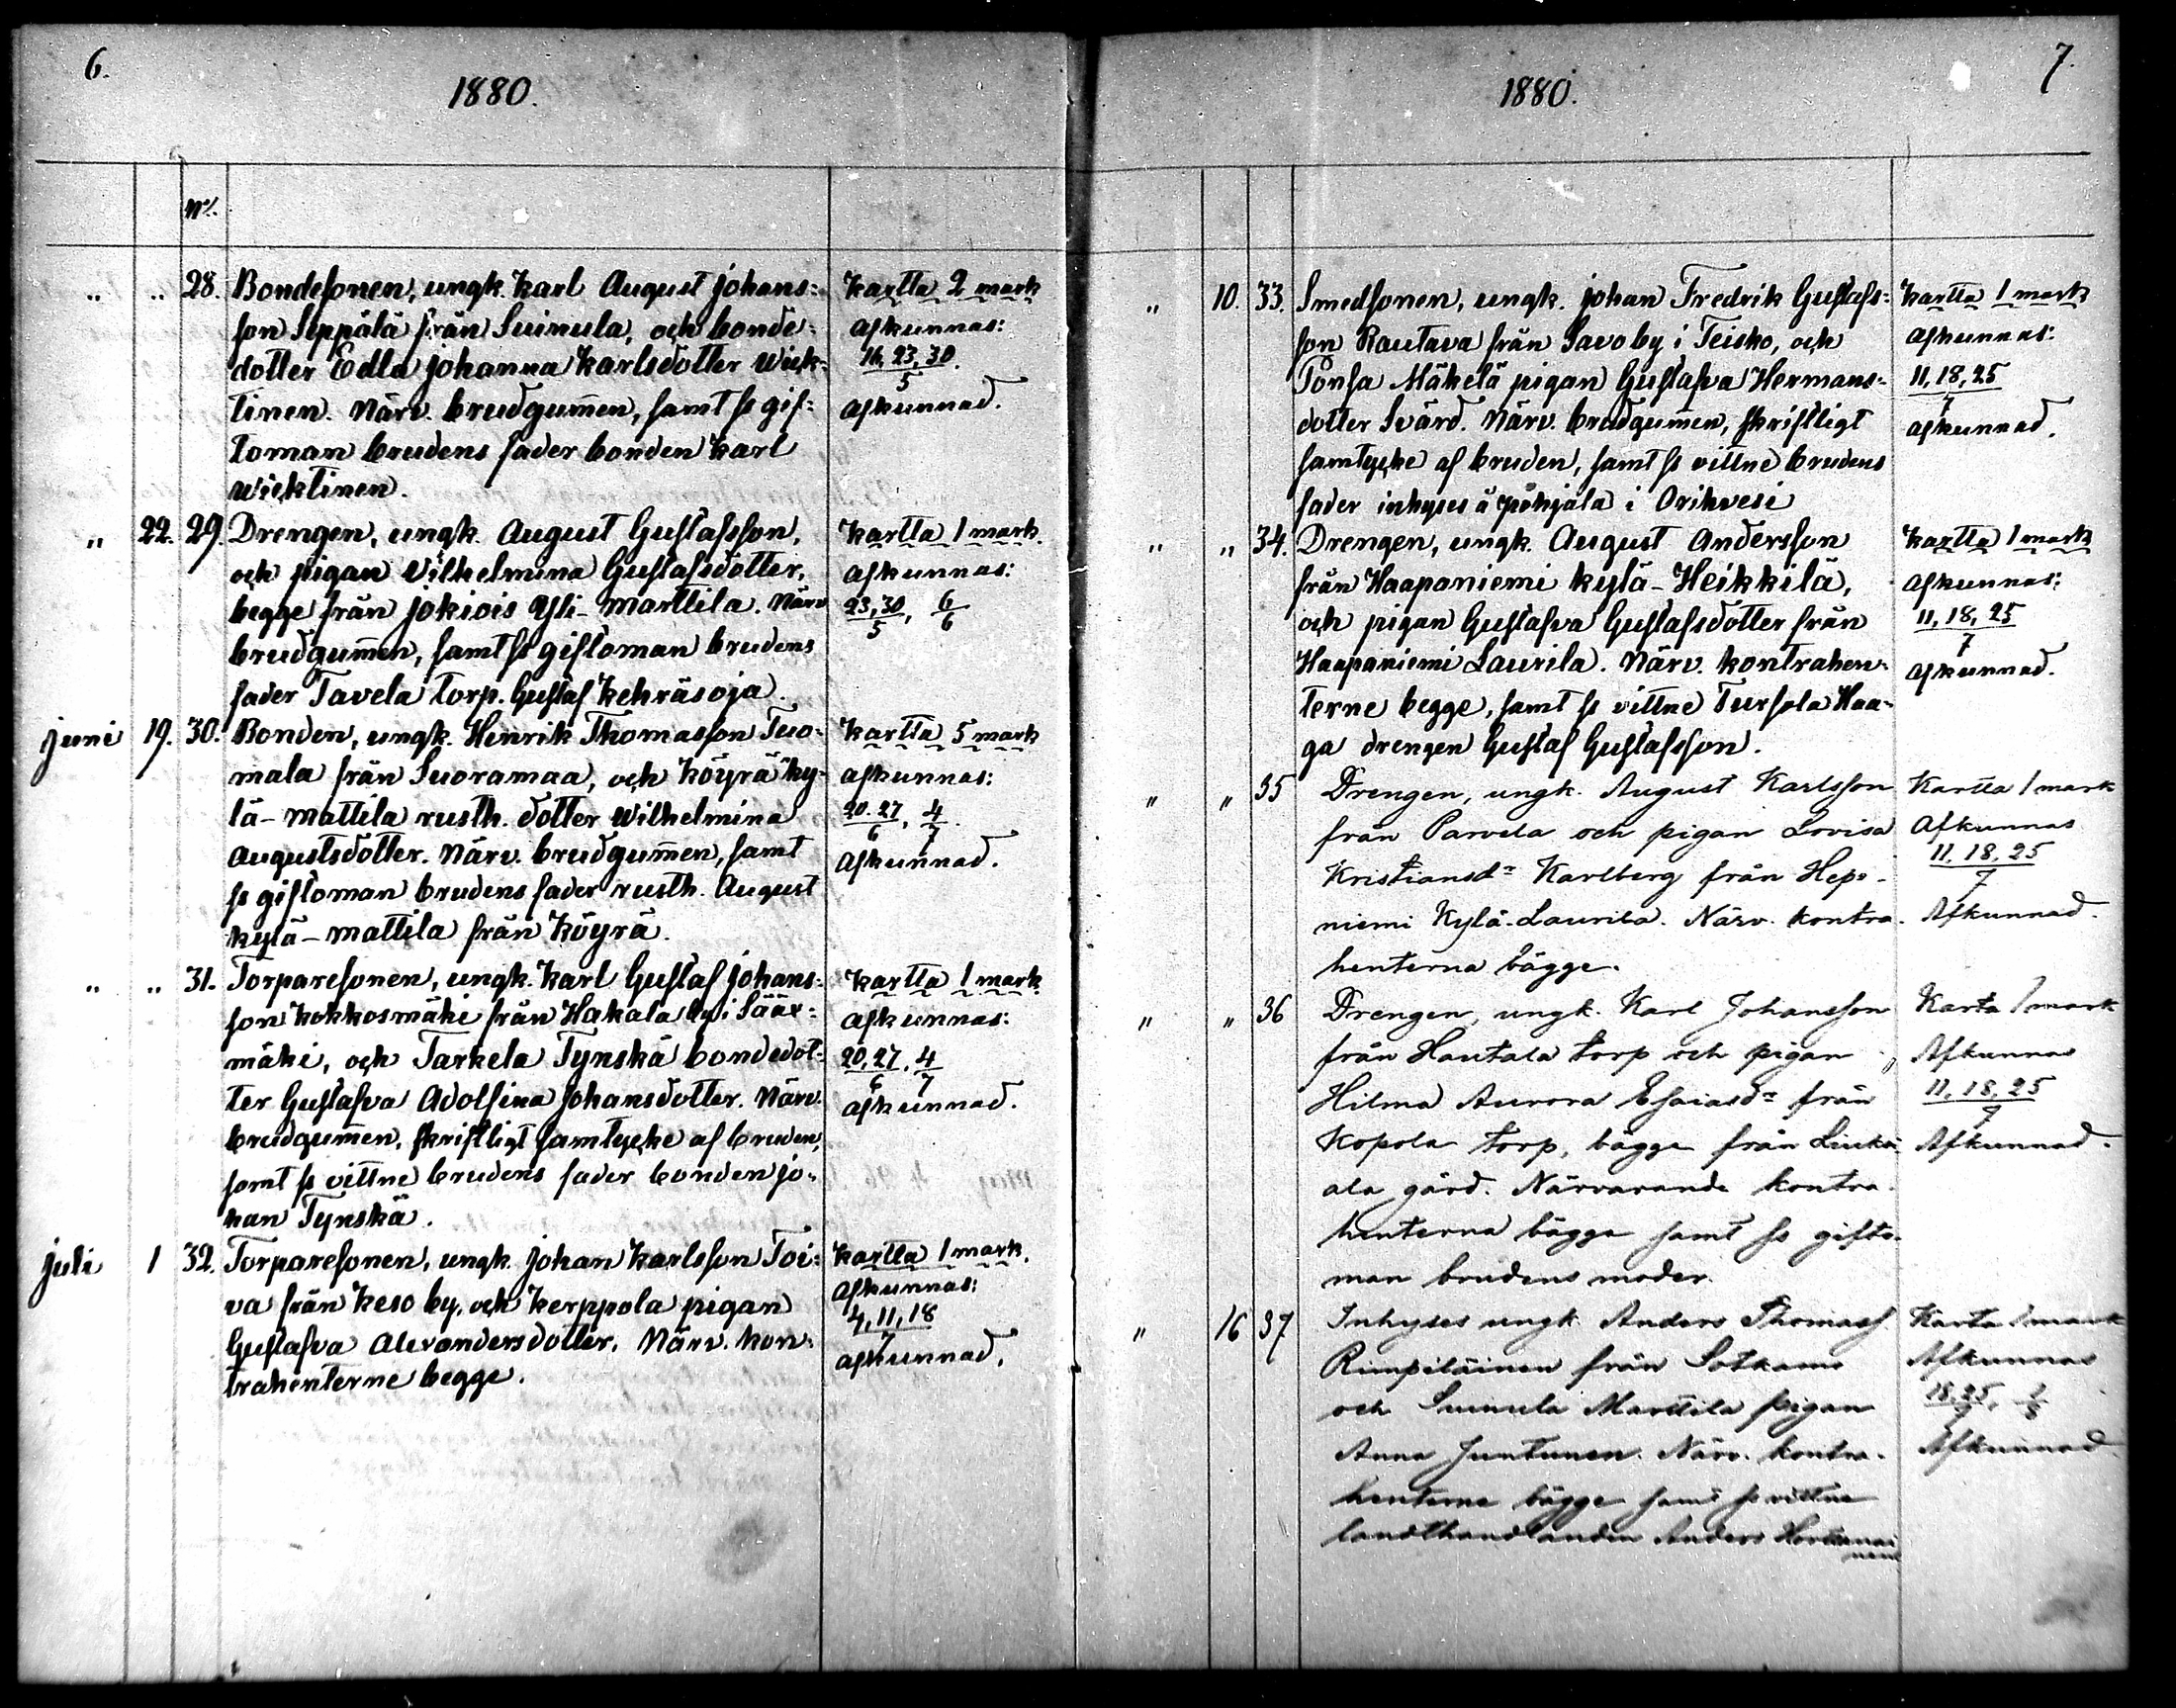 6.
1880.
No.
„ „ 28. Bondesonen, ungk. Karl August Johans- Kartta 2 mark
son Seppälä från Suinula, och bonde- afkunnas:
dotter Edla Johanna Karlsdotter Wick- 16, 23, 30./5
tinen. Närv. brudgum̄en, samt ss gif- afkunnad.
toman brudens fader bonden Karl
Wicktinen.
„ 22. 29. Drengen, ungk. August Gustafsson, Kartta 1 mark.
och pigan Vilhelmina Gustafsdotter, afkunnas:
begge från Jokiois Yli-Marttila. Närv 23, 30/5, 6/6
brudgum̄en, samt ss giftoman brudens
fader Tavela torp. Gustaf Kehräsoja.
Juni 19. 30. Bonden, ungk. Henrik Thomasson Tuo- Kartta 5 mark
mala från Suoramaa, och Köyrä Ky- afkunnas:
lä-Mattila rusth. dotter Wilhelmina 20. 27/6, 4/7.
Augustsdotter. Närv. brudgum̄en, samt afkunnad.
ss giftoman brudens fader rusth. August
Kylä-Mattila från Köyrä.
„ „ 31. Torparesonen, ungk. Karl Gustaf Johans- Kartta 1 mark
son Kokkosmäki från Hakala by i Sääx- afkunnas:
mäki, och Tarkela Tynskä bondedot- 20, 27/6, 4/7
ter Gustafva Adolfina Johansdotter. Närv. afkunnad.
brudgum̄en, skriftligt samtycke af bruden,
samt ss vittne brudens fader bonden Jo-
han Tynskä.
Juli 1 32. Torparesonen, ungk. Johan Karlsson Toi- Kartta 1 mark.
va från Keso by, och Kerppola pigan afkunnas:
Gustafva Alexandersdotter. Närv. kon- 4, 11, 18/7
trahenterne begge. afkunnad.
7.
1880.
„ 10. 33. Smedsonen, ungk. Johan Fredrik Gustafs- Kartta 1 mark
son Rautava från Savo by i Teisko, och afkunnas:
Ponsa Mäkelä pigan Gustafva Hermans- 11, 18, 25/7
dotter Svärd. Närv. brudgum̄en, skriftligt afkunnad.
samtycke af bruden, samt ss vittne brudens
fader inhyses å Pohjala i Orihvesi
„ „ 34. Drengen, ungk. August Andersson Kartta 1 mark
från Haapaniemi Kylä-Heikkilä, afkunnas:
och pigan Gustafva Gustafsdotter från 11, 18, 25/7
Haapaniemi Laurila. Närv. kontrahen- afkunnad.
terne begge, samt ss vittne Tursola Haa-
ga drengen Gustaf Gustafsson.
„ „ 35 Drengen, ungk. August Karlsson Kartta 1 mark
från Parvela och pigan Lovisa Afkunnas
Kristiansdr Karlberg från Hepo- 11, 18, 25/7
niemi Kylä-Laurila. Närv. kontra- Afkunnad.
henterna bägge.
„ „ 36 Drengen, ungk. Karl Johansson Karta 1 mark
från Hautala torp och pigan Afkunnas
Hilma Aurora Esaiasdr från 11, 18, 25/7
Kopola torp, bägge från Liuksi- Afkunnad.
ala gård. Närvarande kontra-
henterna bägge samt ss gifto-
man brudens moder.
„ 16 37 Inhyses ungk. Anders Thomass. Karta 1 mark
Rimpiläinen från Sotkamo Afkunnas
och Suinula Marttila pigan 18, 25/7, 1/8
Anna Juntunen. Närv. kontra- Afkunnad
henterne bägge samt ss vittne
landthandlanden Anders